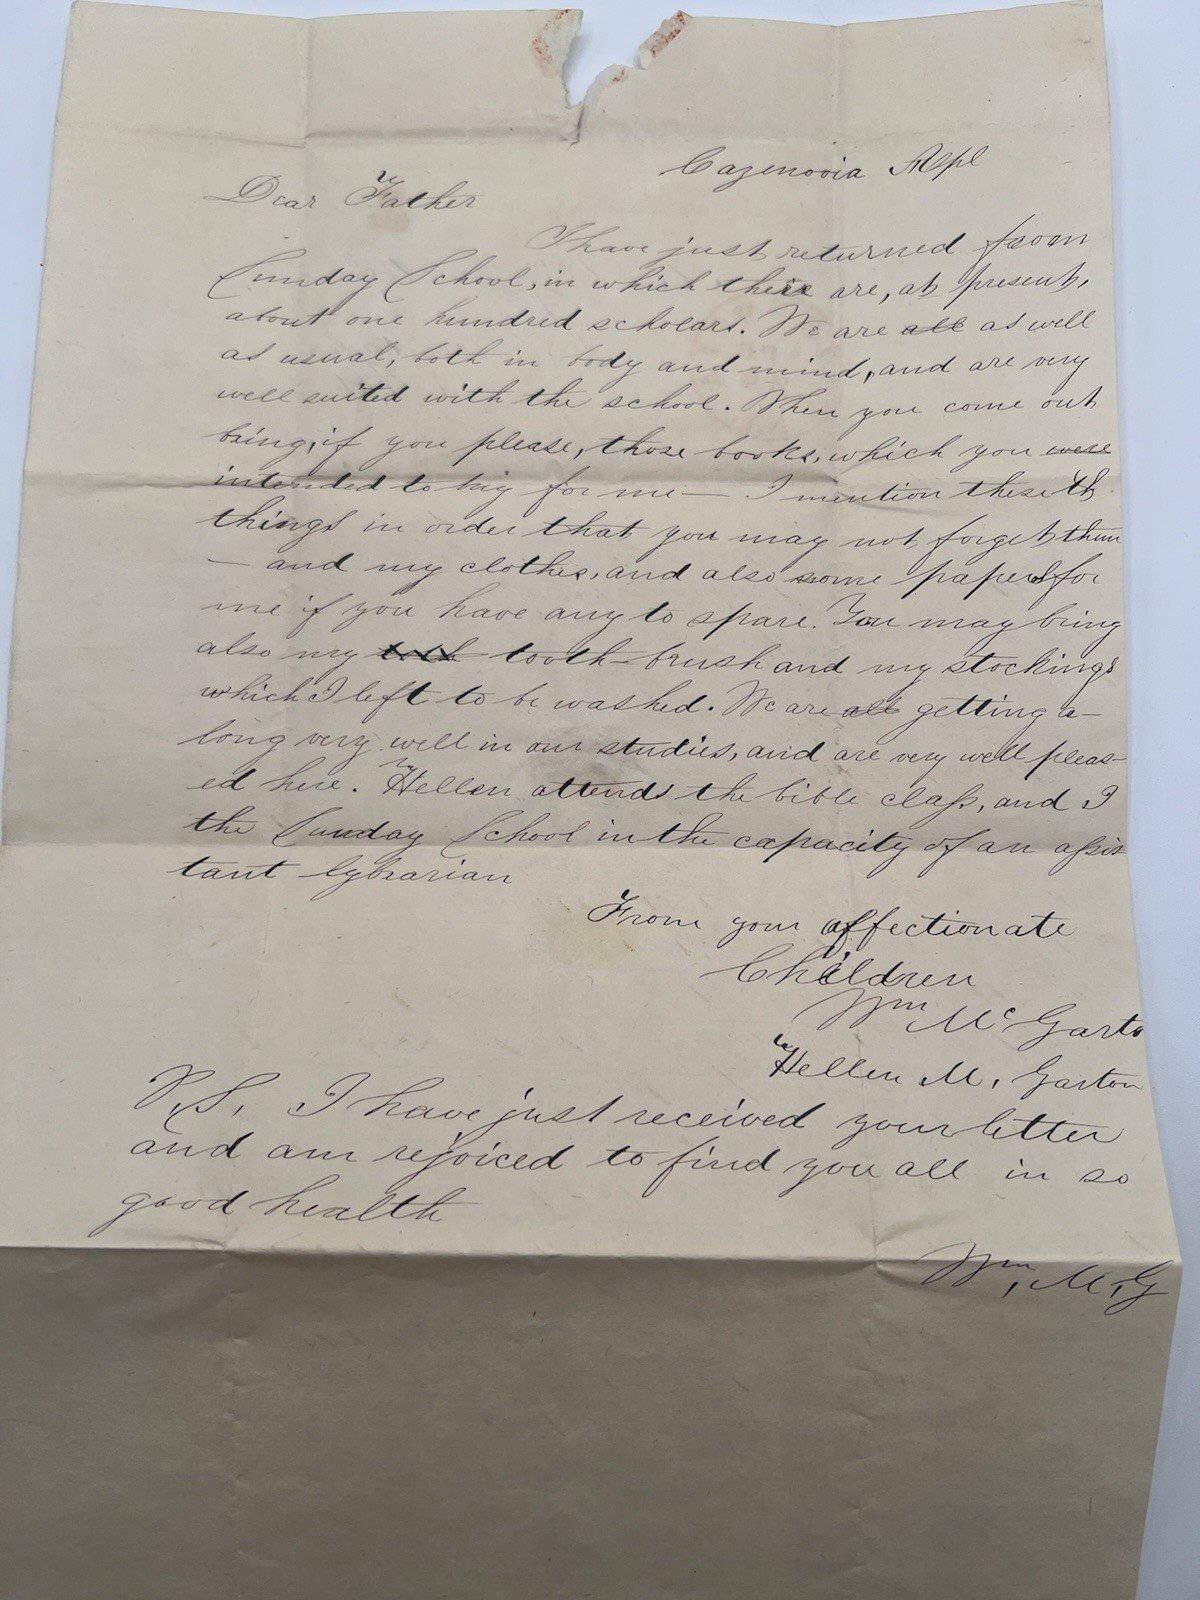 Cazenovia Apl
Dear Father
I have just returned from
Sunday School, in which there are, at present,
about one hundred scholars. We are all as well
as usual, both in body and mind, and are very
well suited with the school. When you come out
bring, if you please, those books, which you were
intended to big for me — I mention these th
things in order that you may not forget them
— and my clothes, and also some papers for
me if you have any to spare. You may bring
also my tooth-brush and my stockings
which I left to be washed. We are all getting a-
long very well in our studies, and are very well pleas-
ed here. Hellen attends the bible class, and I
the Sunday School in the capacity of an assis
tant lybrarian
From your affectionate
Children
Wm Mc Garto
Hellen M. Garton
P.S. I have just received your letter
and am rejoiced to find you all in so
good health
Wm, M, G